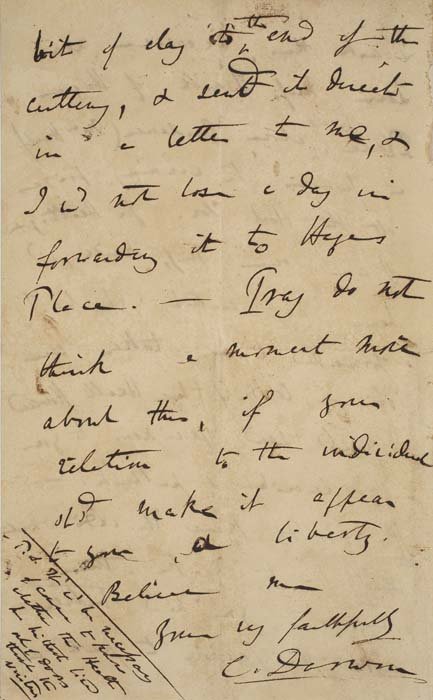 bit of clay to the end of the
cutting, & send it direct
in a letter to me, &
I wd not lose a day in
forwarding it to Hayes
Place. — Pray do not
think a moment more
about this, if your
relation to the individual
shd make it appear
to you a liberty.
Believe me
Yours very faithfully
C. Darwin
P.S. It wd be necessary
of course to
whether the Heath
he
old one